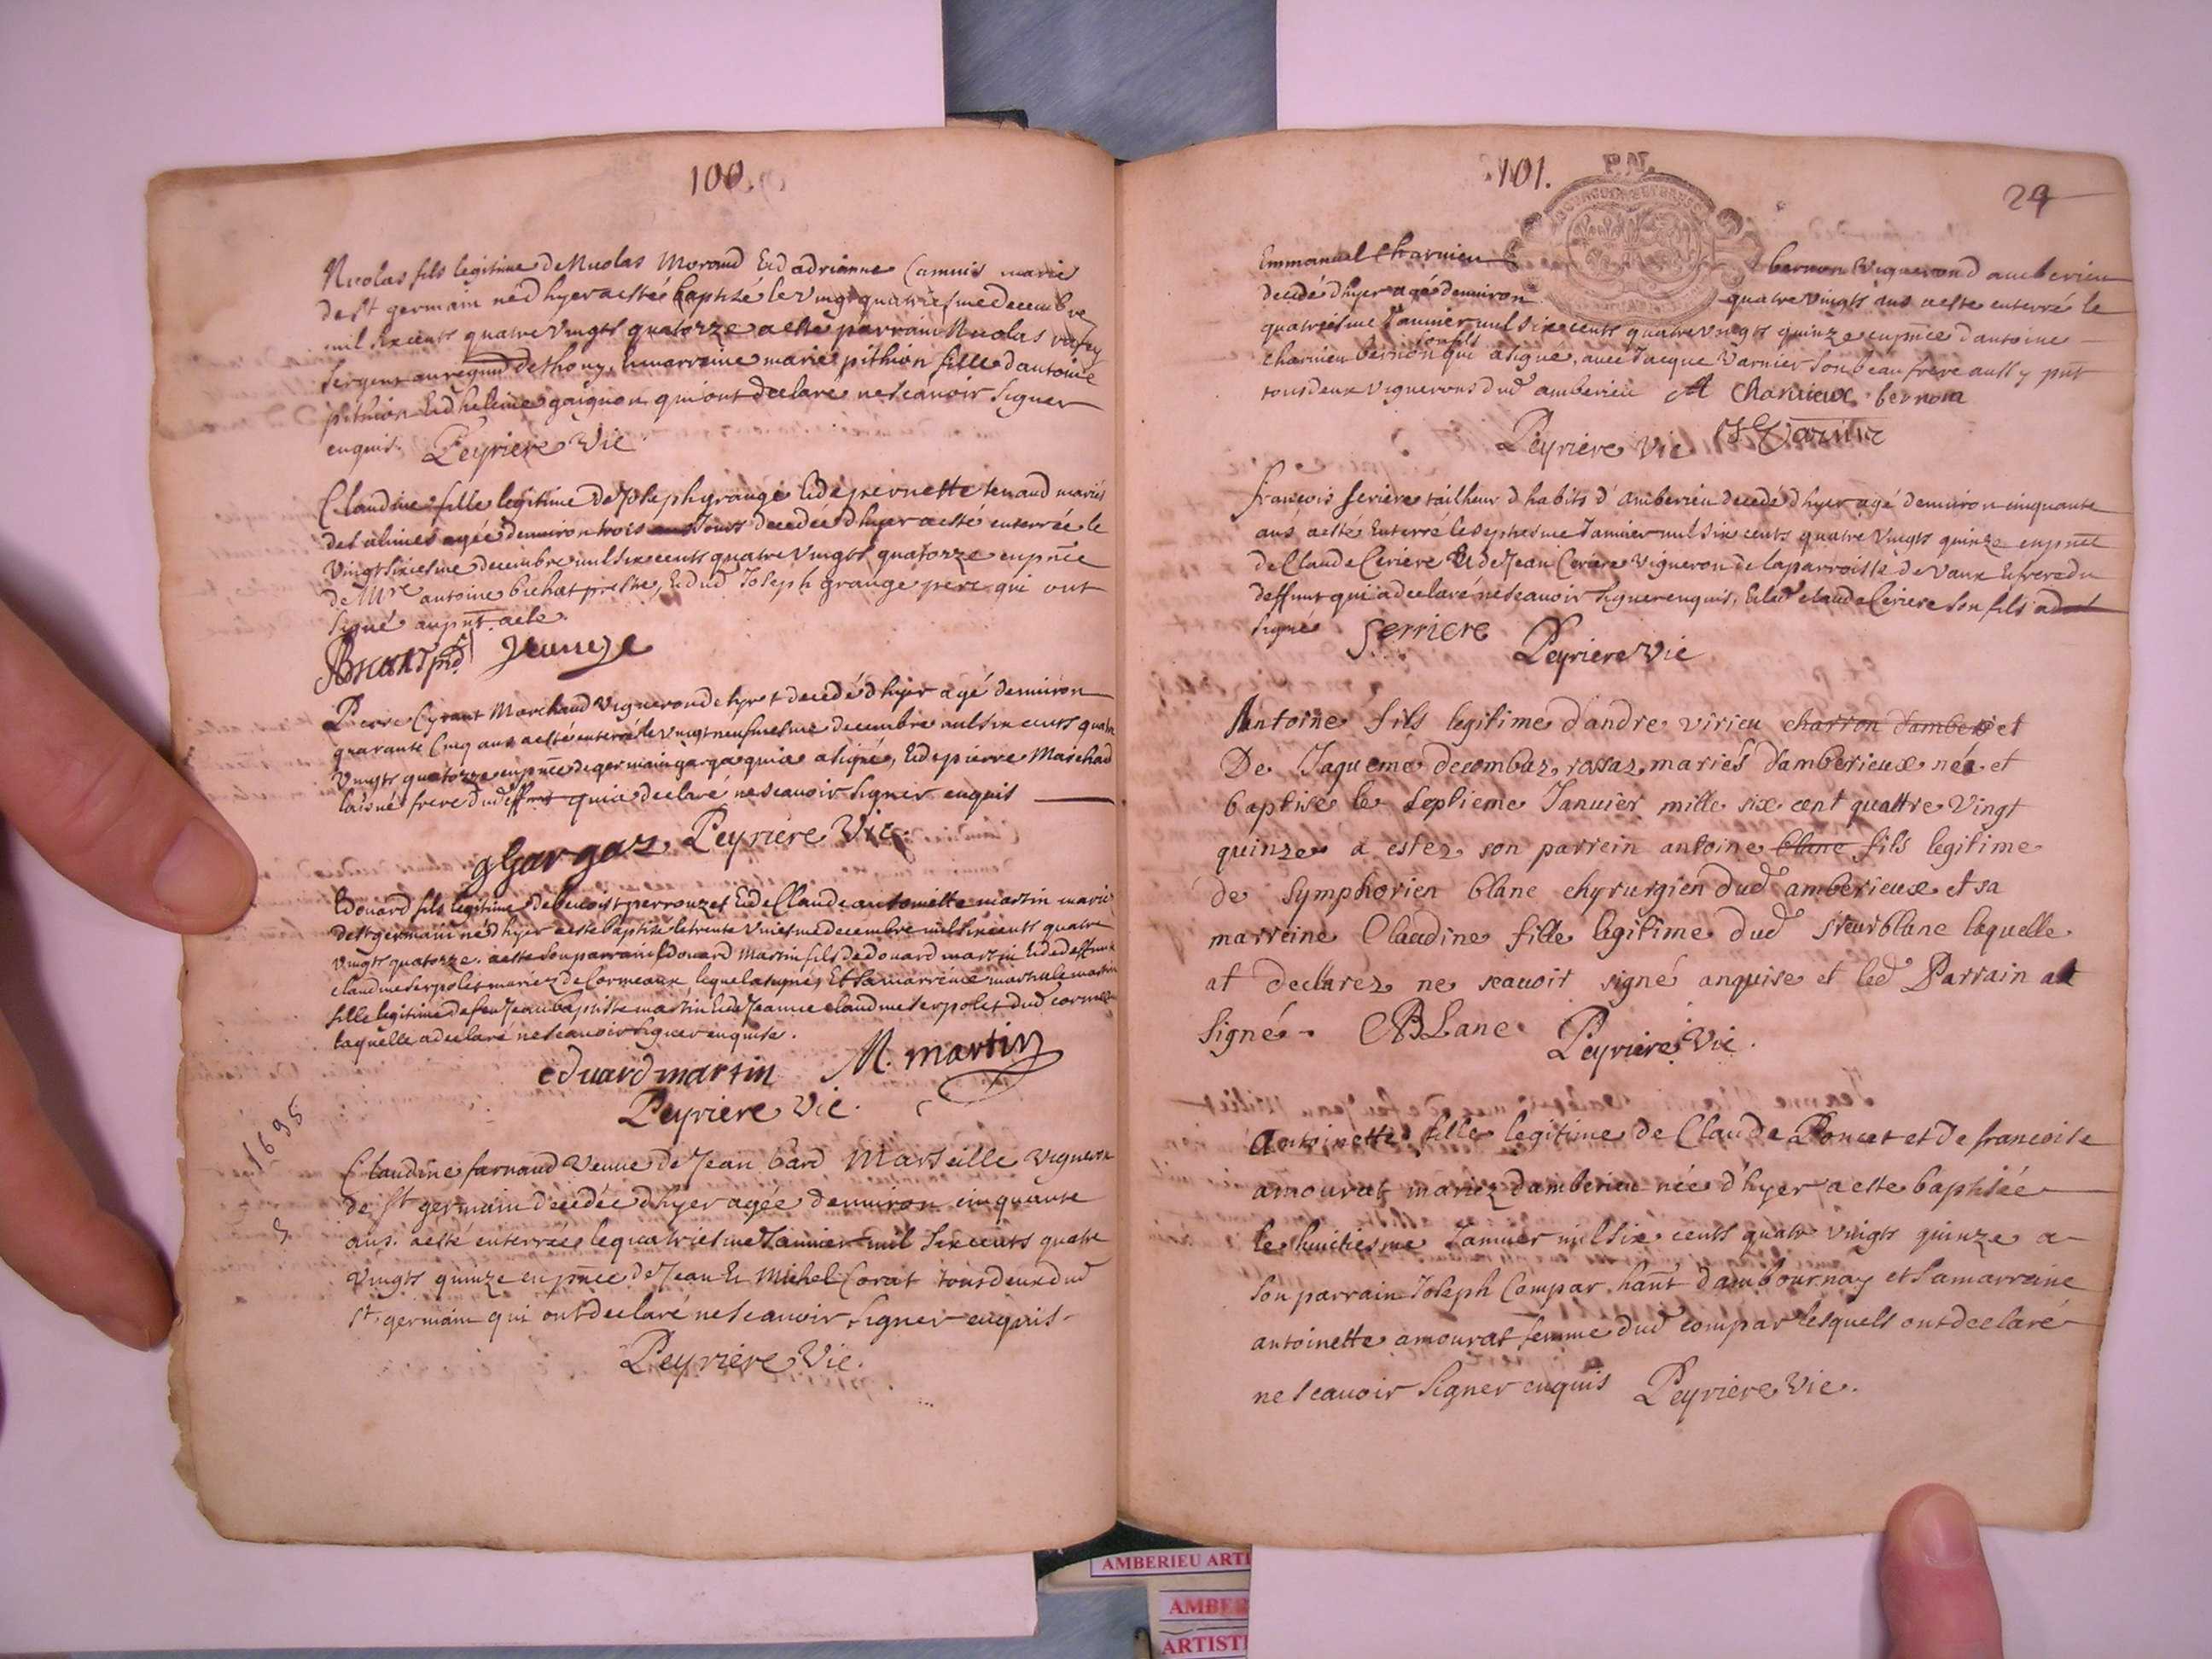 100.
Nicolas fils legitime de Nicolas Morand Et d adrianne Camus mariés
de St germain né d hyer a esté baptisé le vingt quatriesme decembre
mil six cents quatre vingts quatorze a esté parrain Nicolas
Sergent de thony, la marreine marie pithion fille d antoine
pithion Et d helene gaignon qui ont declaré ne scavoir signer
enquis. Peyriere Vic
Claudine fille legitime de Joseph grange Et de pernette tenaud mariés
des alimes agée d environ trois Jours decedée d hyer a esté enterrée le
Vingt sixiesme decembre mil six cents quatre Vingts quatorze en pnce
de Mre antoine bichat prestre, Et dud Joseph grange pere qui ont
signé au pnt acte.
Pierre Cyrant Marchand Vigneron de decedé d hyer agé d environ
quarante Cinq ans a esté enterré le Vingt neufviesme decembre mil six cents quatre
Vingts quatorze en pnce de germain garga qui a signé, Et de pierre Marchad
laisné frere dud deffunt qui a declaré ne scavoir signer enquis
g Gargaz Peyriere Vic.
Edouard fils legitime de benoist perrouzet Et de Claude antoinette martin mariés
de St germain né d hyer a esté baptisé le trente Uniesme decembre mil six cents quatre
vingts quatorze. a esté son parrain Edouard Martin fils d edouard martin Et de deffunte
claudine serpolet mariez de Cormeaux lequel a signé, Et sa marreine martin
fille legitime de feu Jean baptiste martin Et de Jeanne claudine serpolet dud
laquelle a declaré ne scavoir signer enquise.
eduard martin M. martin
Peyriere Vic.
1695
Claudine farnaud Veuve de Jean bard Marseille Vigneron
de St germain decedée d hyer agée d environ cinquante
ans. a esté enterrée le quatriesme Janvier mil six cents quatre
Vingts quinze en pnce de Jean Et Michel Corat tous deux dud
St germain qui ont declaré ne scavoir signer enquis
Peyriere Vic.
101.
29
Emmanuel Charvieu bernon Vigneron d amberieu
decedé d hyer agé d environ quatre Vingts ans a esté enterré le
quatriesme Janvier mil six cents quatre Vingts quinze en pnce d antoine
charvieu bernon son fils qui a signé, avec Jacque Varnier son beau frere aussy pnt
tous deux Vignerons dud amberieu A Charvieux bernon
Peyriere Vic
francois seriere tailheur d habits d Amberieu decedé d hyer agé d environ cinquante
ans a esté Enterré le septiesme Janvier mil six cents quatre Vingts quinze en pnce
de Claude Ceriere Et de Jean Ceriere Vigneron de la parroisse de Vaux Et frere du
deffunt qui a declaré ne scavoir signer enquis, Et led claude Ceriere son fils a
signé Serriere Peyriere Vic
Antoine fils legitime d'andre virieu charron d'amberi et
De Jaqueme decombaz rossaz mariés d'amberieux née et
baptisé le septieme Januier mille six cent quattre Vingt
quinze a estez son parrein antoine blanc fils legitime
de symphorien blanc chyrurgien dud amberieux et sa
marreine Claudine fille legitime dud sieur blanc laquelle
at declarez ne scauoir signé anquise et led Parrain at
signé. A BLanc Peyriere Vic.
Antoinette fille legitime de Claude Poncet et de francoise
amourat mariez d amberieu née d'hyer a esté baptisée
le huictiesme Janvier mil six cents quatre vingts quinze a
son parrain Joseph Compar hant d ambournay et sa marraine
antoinette amourat femme dud compar lesquels ont declaré
ne scauoir signer enquis Peyriere Vic.
AMBERIEU ARTI
AMBER
ARTISTI